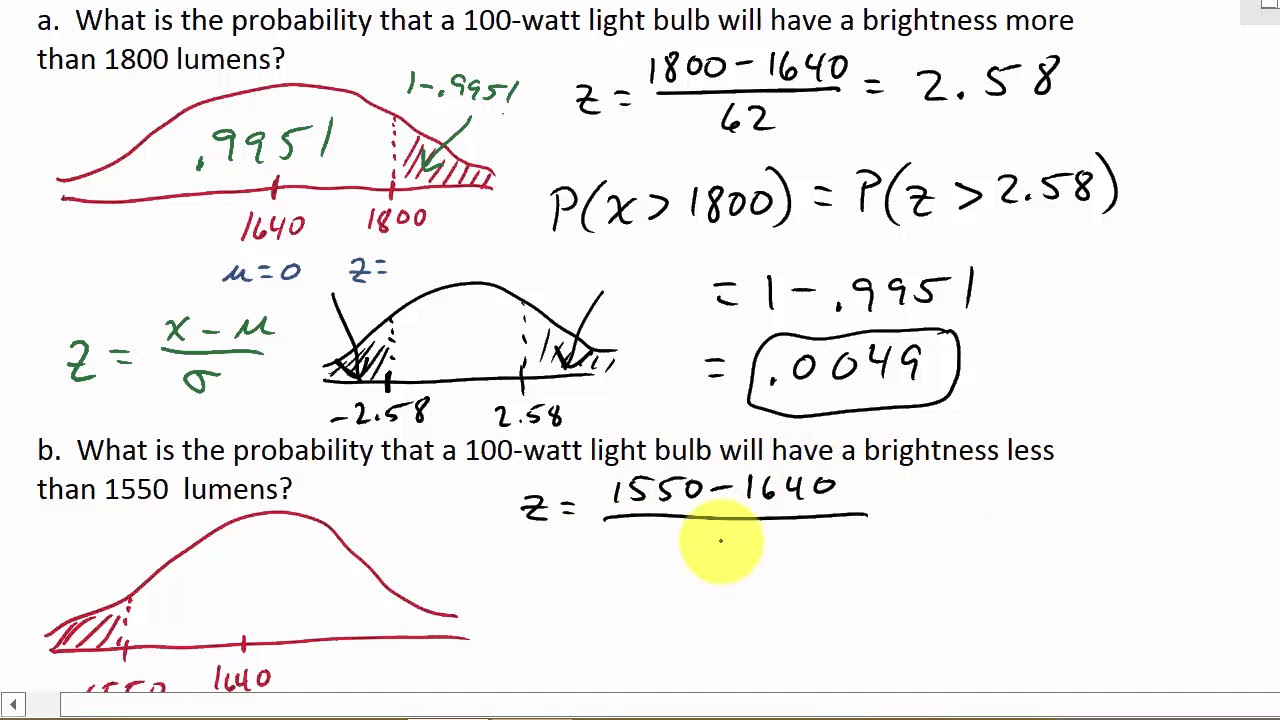 a.  What is the probability that a 100-watt light bulb will have a brightness more
than 1800 lumens?
1-.9951
z = 1800 - 1640 / 62 = 2.58
.9951
P(x > 1800) = P(z > 2.58)
1640 1800
μ = 0 z =
= 1 - .9951
z = x - μ / σ
= .0049
-2.58 2.58
b.  What is the probability that a 100-watt light bulb will have a brightness less
than 1550  lumens?
z = 1550 - 1640
1550 1640